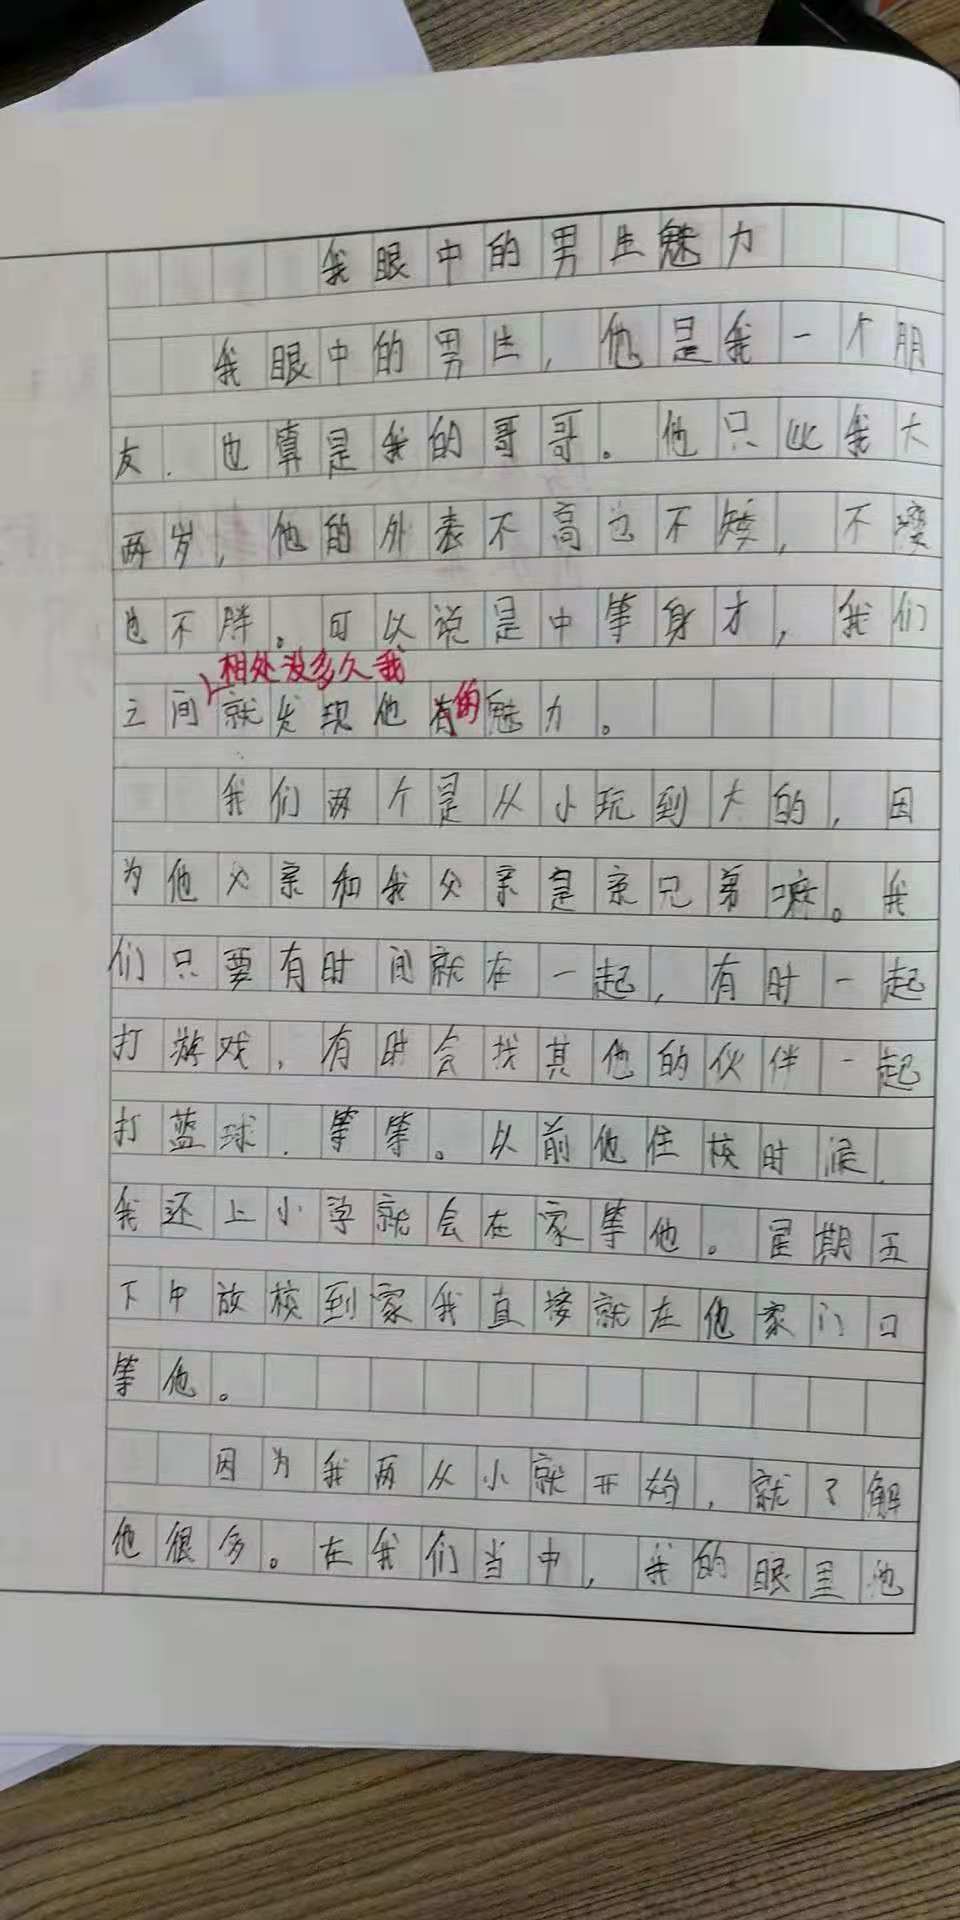 我眼中的男生魅力
我眼中的男生，他是我一个朋
友．也算是我的哥哥。他只比我大
两岁，他的外表不高也不矮，不瘦
也不胖。可以说是中等身才，我们
相处没多久我
之间就发现他有的魅力。
我们两个是从小玩到大的，因
为他父亲和我父亲是亲兄弟嘛。我
们只要有时间就在一起，有时一起
打游戏，有时会找其他的伙伴一起
打蓝球．等等。以前他住校时候，
我还上小学就会在家等他。星期五
下午放校到家我直接就在他家门口
等他。
因为我两从小就开始，就了解
他很多。在我们当中，我的眼里他